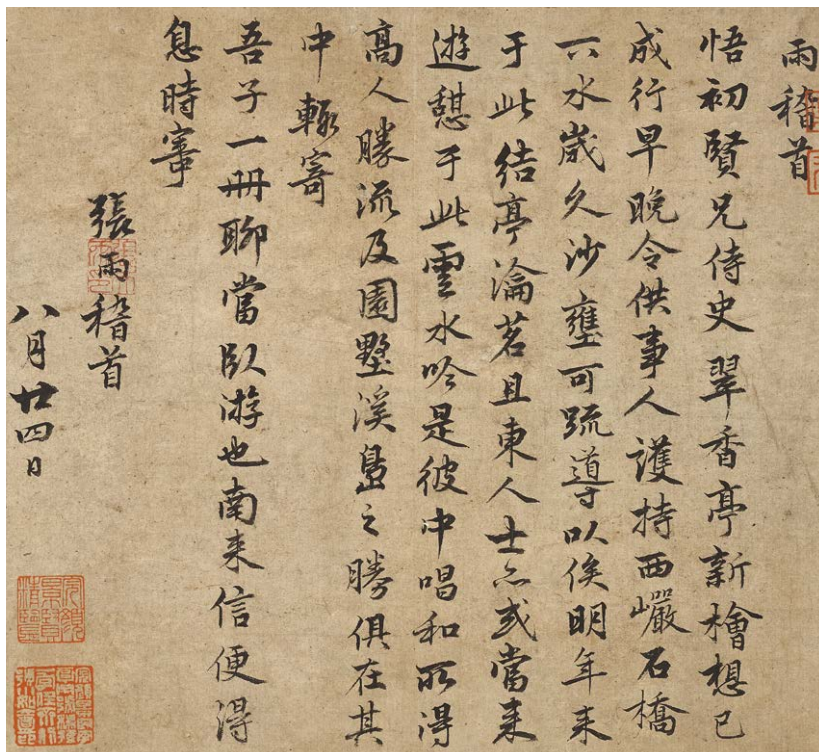 雨稽首
悟初賢兄侍史翠香亭新檜想已
成行早晚令供事人護持西巖石橋
下水歲久沙壅可疏導以俟明年來
于此結亭瀹茗且東人士亦或當來
遊憩于此雲水吟是彼中唱和所得
高人勝流及園墅溪島之勝俱在其
中輙寄
吾子一冊聊當臥游也南来信便得
息時寄
張雨稽首
八月廿四日